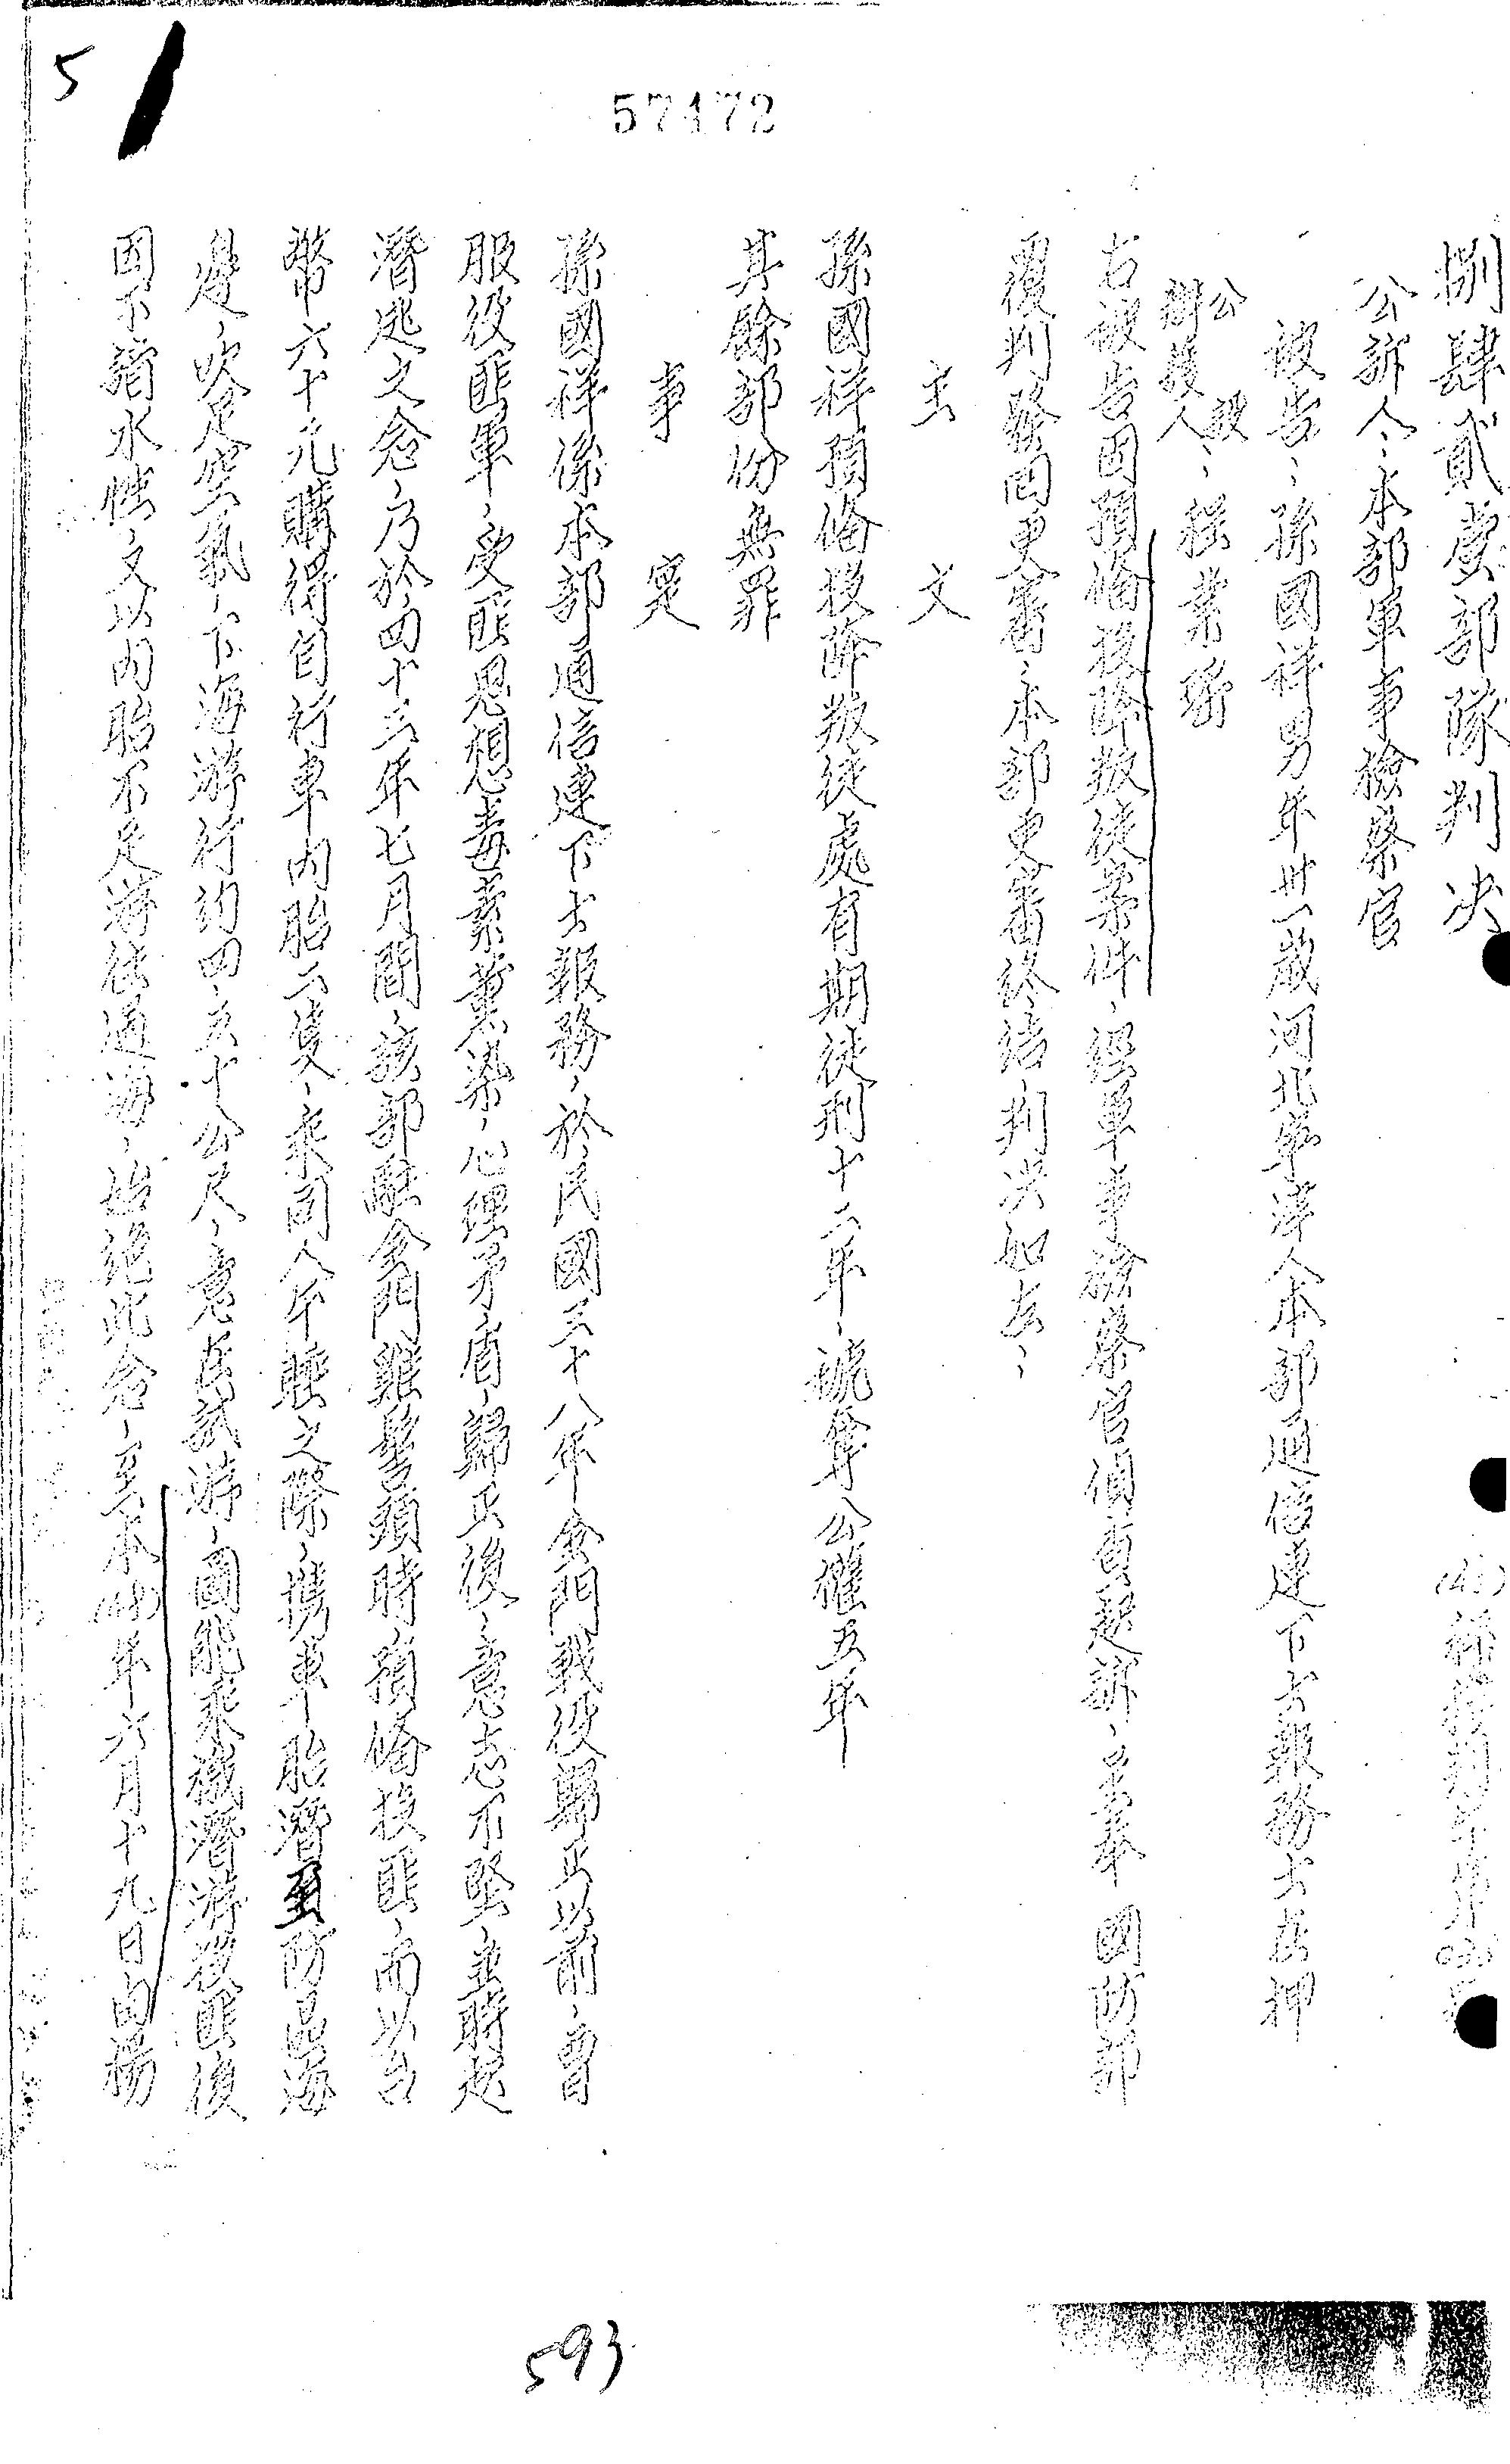 57472
5
捌肆貳零部隊判決
公訴人、本部軍事檢察官
被告、孫國祥男年卅一歲河北寧津人本部通信連下士報務士在押
公設辯護人、程業珩
右被告因預備投降叛徒案件、經軍事檢察官偵查起訴、呈奉 國防部
覆判發回更審、本部更審終結、判決如左、
主文
孫國祥預備投降叛徒處有期徒刑十二年、褫奪公權五年
其餘部份無罪
事實
孫國祥係本部通信連下士報務、於民國三十八年金門戰役歸正以前、曾
服役匪軍、受匪思想毒素薰染、心理矛盾、歸正後、意志不堅、並時起
潛逃之念、乃於四十三年七月間、該部駐金門雞髻頭時、預備投匪、而以台
幣六十元購得自行車內胎二隻、乘同人午睡之際、携車胎潛至防區海
邊、吹足空氣、下海游行約四、五十公尺、意在試游、圖能乘機潛游投匪後
因不諳水性、又以內胎不足游法過海、始絕此念、至本年六月十九日由楊
593